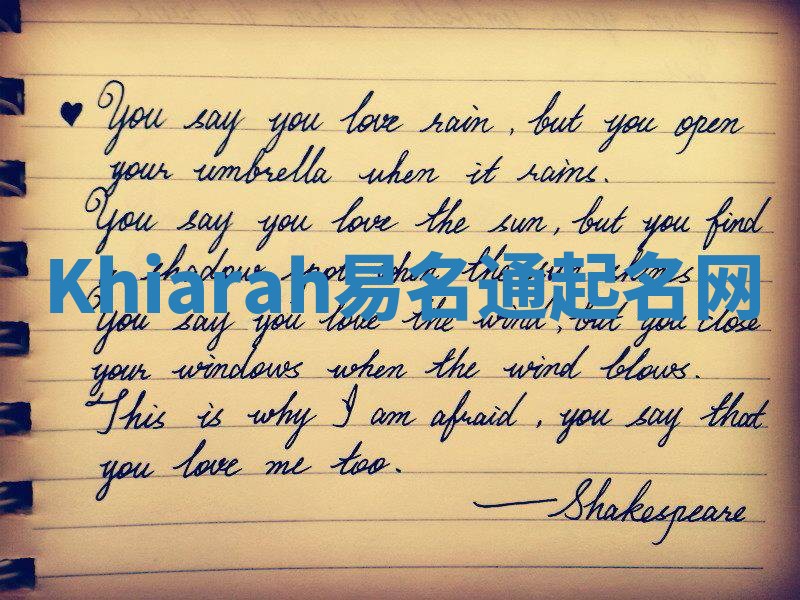 ♥ You say you love rain, but you open
your umbrella when it rains.
You say you love the sun, but you find
a shadow spot when the sun shines
Khiarah易名通起名网
You say you love the wind, but you close
your windows when the wind blows.
This is why I am afraid, you say that
you love me too.
—Shakespeare